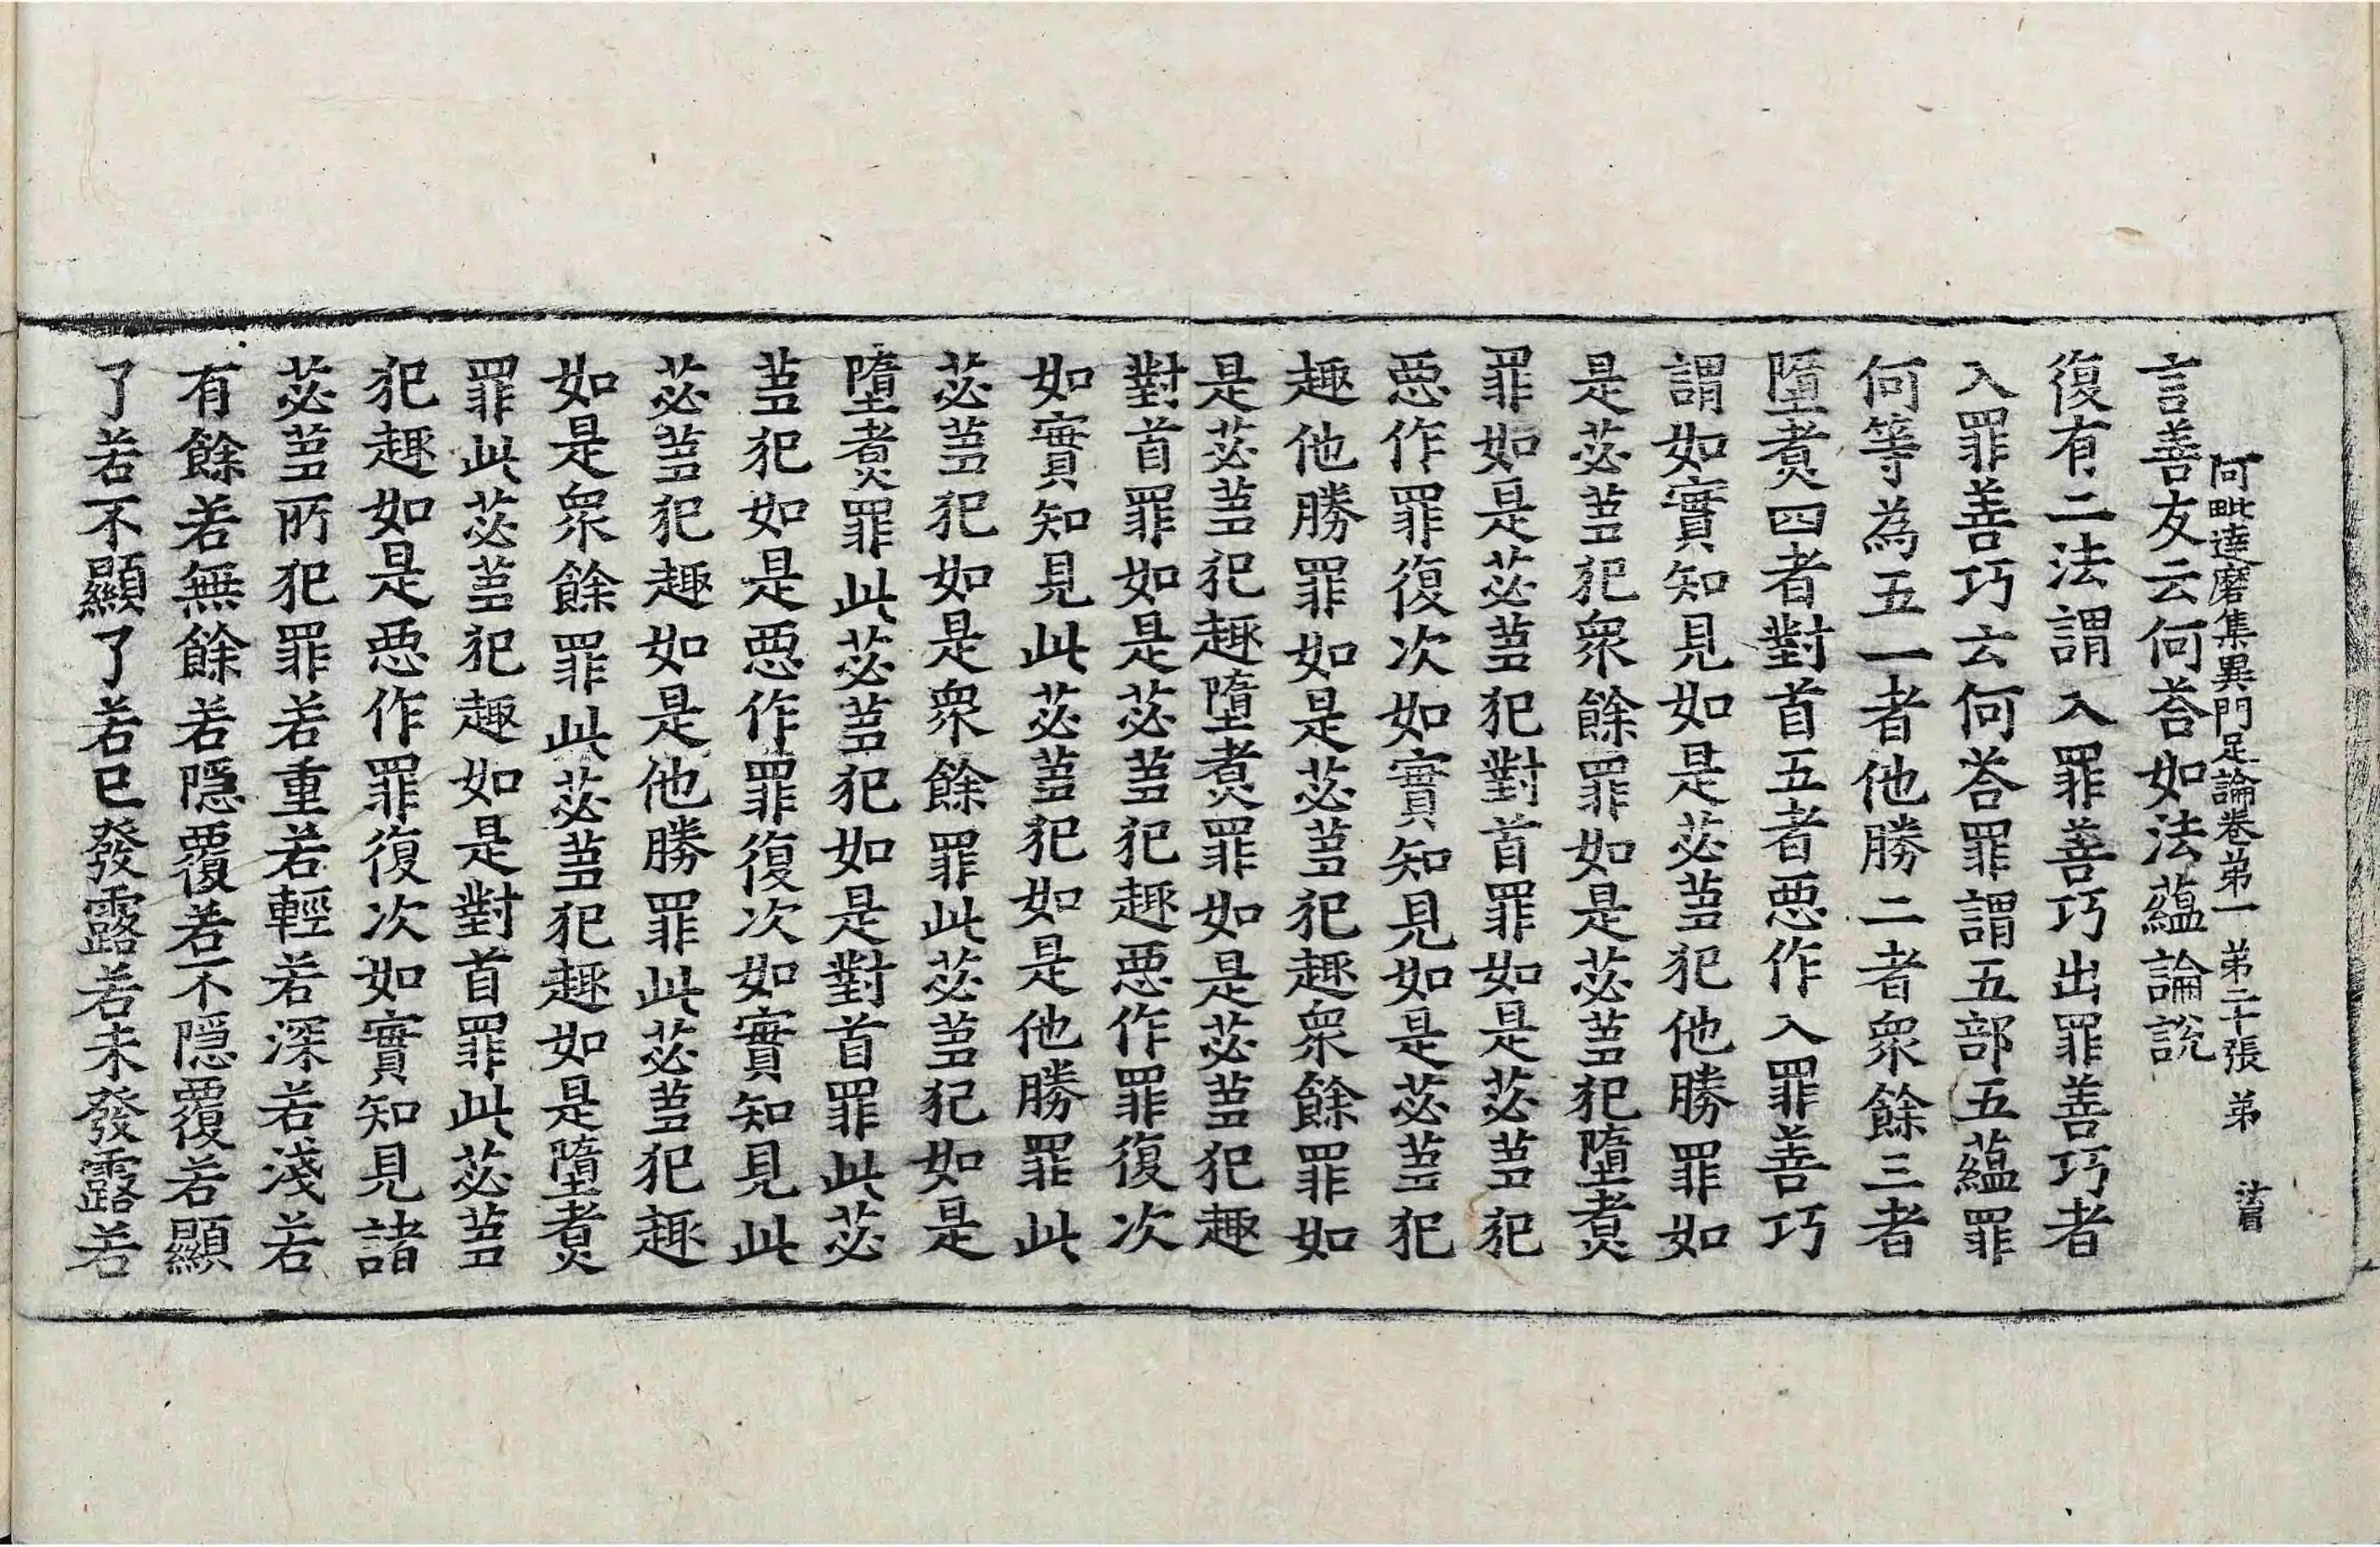 阿毗達磨集異門足論卷第一 第二十張 弟
言善友云何荅如法蘊論說
復有二法謂入罪善巧出罪善巧者
入罪善巧云何荅罪謂五部五蘊罪
何等為五一者他勝二者衆餘三者
墮煑四者對首五者惡作入罪善巧
謂如實知見如是苾蒭犯他勝罪如
是苾蒭犯衆餘罪如是苾蒭犯墮煑
罪如是苾蒭犯對首罪如是苾蒭犯
惡作罪復次如實知見如是苾蒭犯
趣他勝罪如是苾蒭犯趣衆餘罪如
是苾蒭犯趣墮煑罪如是苾蒭犯趣
對首罪如是苾蒭犯趣惡作罪復次
如實知見此苾蒭犯如是他勝罪此
苾蒭犯如是衆餘罪此苾蒭犯如是
墮煑罪此苾蒭犯如是對首罪此苾
蒭犯如是惡作罪復次如實知見此
苾蒭犯趣如是他勝罪此苾蒭犯趣
如是衆餘罪此苾蒭犯趣如是墮煑
罪此苾蒭犯趣如是對首罪此苾蒭
犯趣如是惡作罪復次如實知見諸
苾蒭所犯罪若重若輕若深若淺若
有餘若無餘若隱覆若不隱覆若顯
了若不顯了若已發露若未發露若